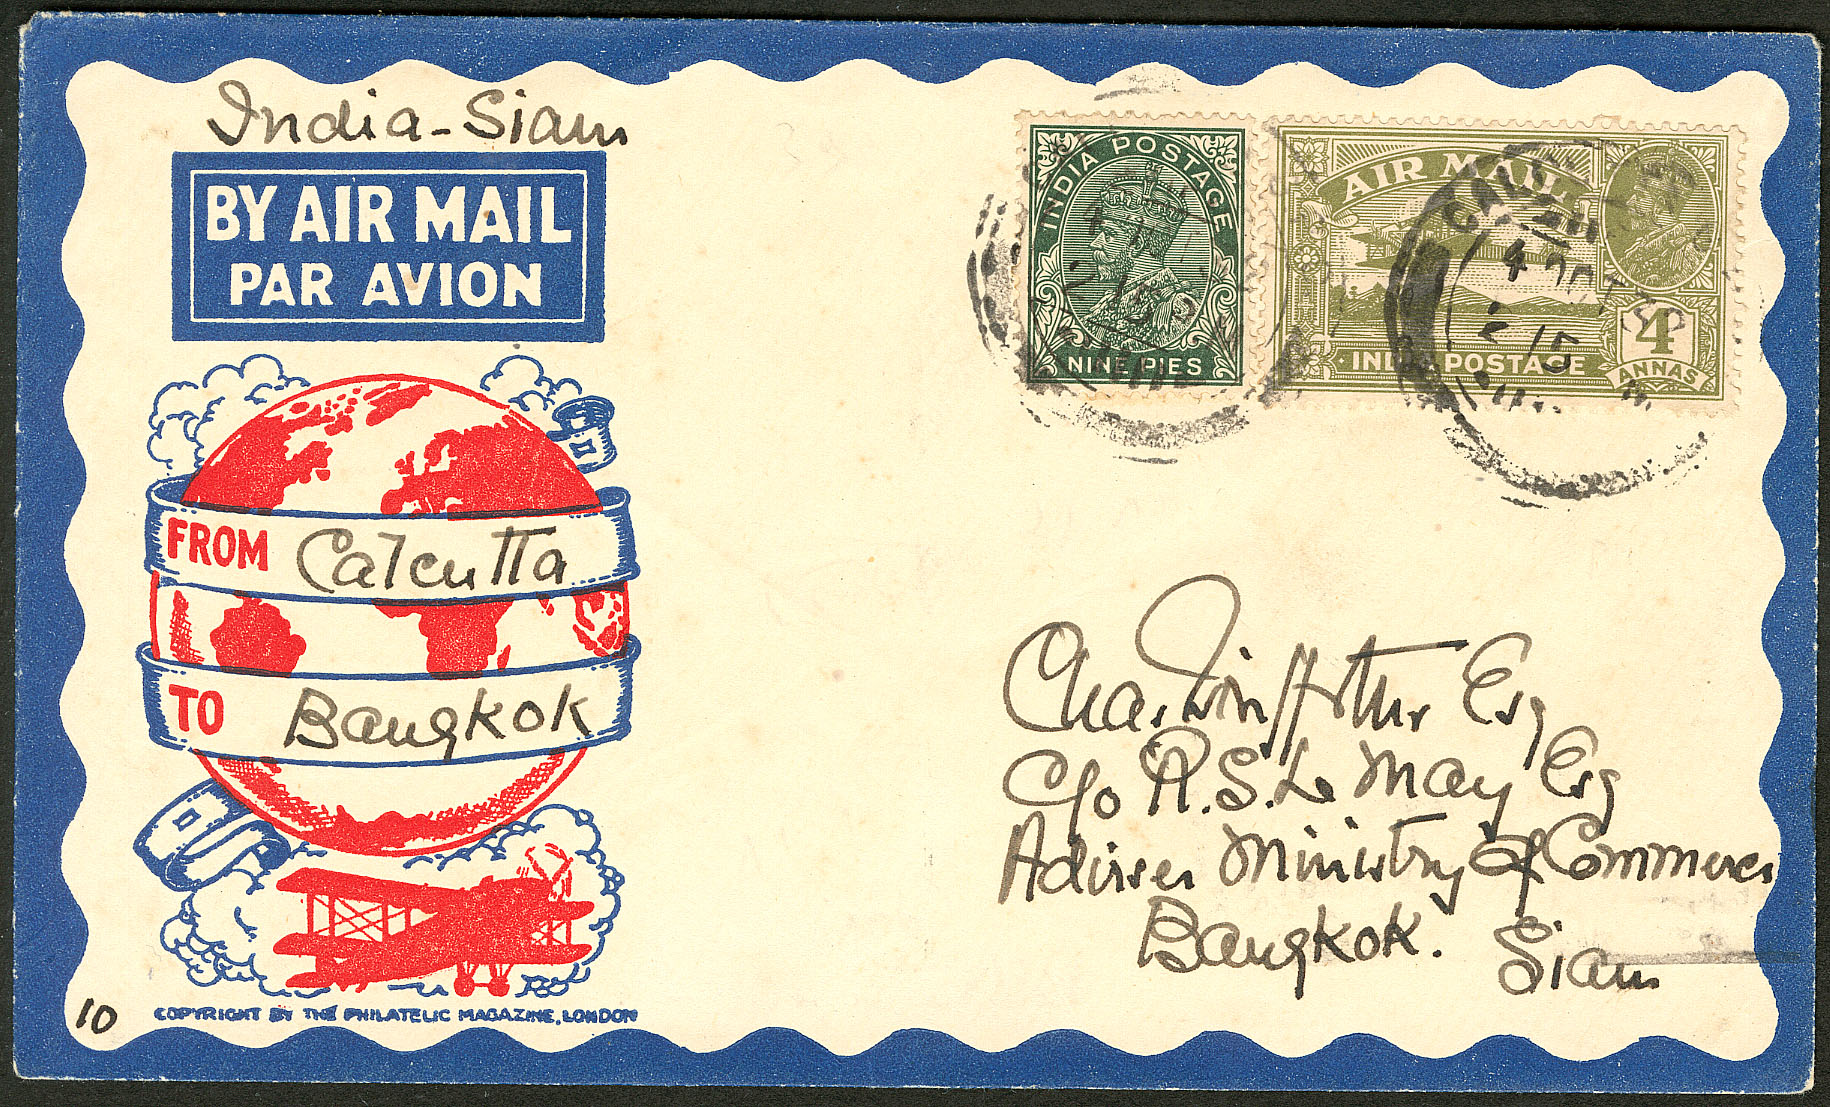 India-Siam
BY AIR MAIL
PAR AVION
FROM Calcutta
TO Bangkok
COPYRIGHT BY THE PHILATELIC MAGAZINE, LONDON
10
INDIA POSTAGE
NINE PIES
AIR MAIL
INDIA POSTAGE
4
ANNAS
Chas. Griffiths Esq
C/o R. S. Le May Esq
Adviser Ministry of Commerce
Bangkok.
Siam